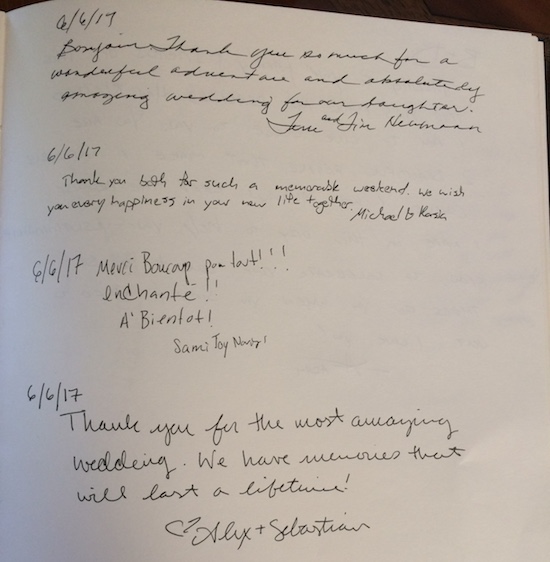 6/6/17
Bonjour Thank you so much for a
wonderful adventure and absolutely
amazing wedding for our daughter.
and Jim Neumann
6/6/17
Thank you both for such a memorable weekend. We wish
you every happiness in your new life together.
Michael &
6/6/17 Merci Boucoup par tout!!!
enchanté!!
A' Bientot!
Sami Joy
6/6/17
Thank you for the most amazing
wedding. We have memories that
will last a lifetime!
Alex + Sebastian